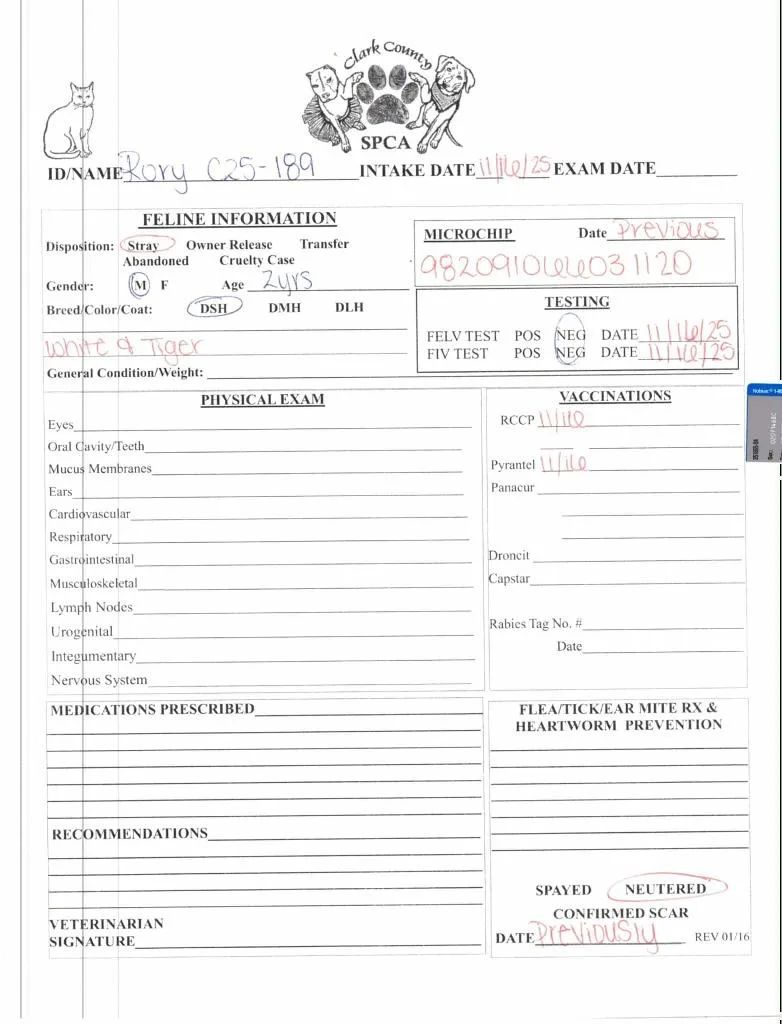 Clark County
SPCA
ID/NAME Rory C25-189 INTAKE DATE 11/16/25 EXAM DATE
FELINE INFORMATION
Disposition: Stray Owner Release Transfer
Abandoned Cruelty Case
Gender: M F Age 2yrs
Breed/Color/Coat: DSH DMH DLH
White & Tiger
General Condition/Weight:
MICROCHIP Date Previous
982091066031120
TESTING
FELV TEST POS NEG DATE 11/16/25
FIV TEST POS NEG DATE 11/16/25
PHYSICAL EXAM
Eyes
Oral Cavity/Teeth
Mucus Membranes
Ears
Cardiovascular
Respiratory
Gastrointestinal
Musculoskeletal
Lymph Nodes
Urogenital
Integumentary
Nervous System
VACCINATIONS
RCCP 11/16
Pyrantel 11/16
Panacur
Droncit
Capstar
Rabies Tag No. #
Date
MEDICATIONS PRESCRIBED
RECOMMENDATIONS
VETERINARIAN
SIGNATURE
FLEA/TICK/EAR MITE RX &
HEARTWORM PREVENTION
SPAYED NEUTERED
CONFIRMED SCAR
DATE Previously REV 01/16